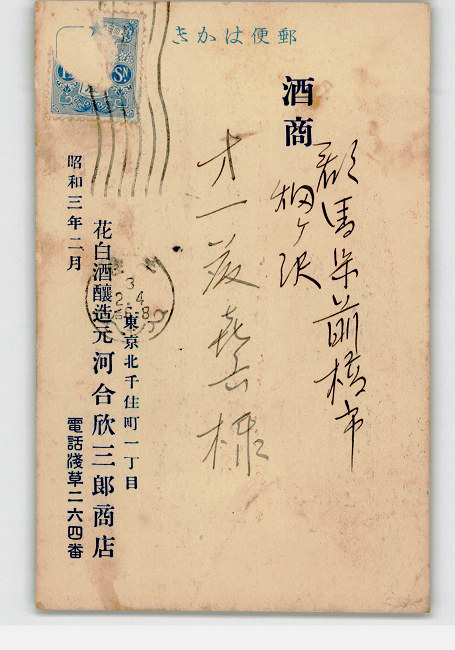 郵便はかき
酒商
群馬県前橋市
様
昭和三年二月
東京北千住町一丁目
花白酒釀造元河合欣三郎商店
電話淺草二六四番
3
2.4